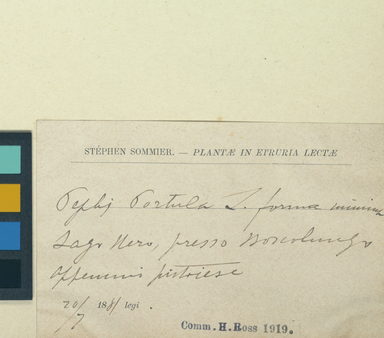 STÉPHEN SOMMIER. — PLANTÆ IN ETRURIA LECTÆ
Peplis Portula L. forma minima
Lago Nero, presso Boscolungo
Appennino pistoiese
20/7 18 legi.
Comm. H. Ross 1919.